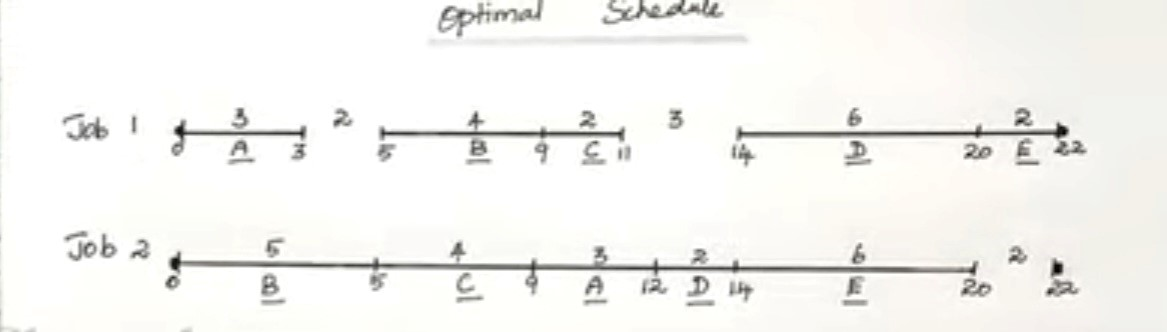 Optimal Schedule
3 2 4 2 3 6 2
Job 1
0 A 3 5 B 9 C 11 14 D 20 E 22
Job 2 5 4 3 2 6 2
0 B 5 C 9 A 12 D 14 E 20 22